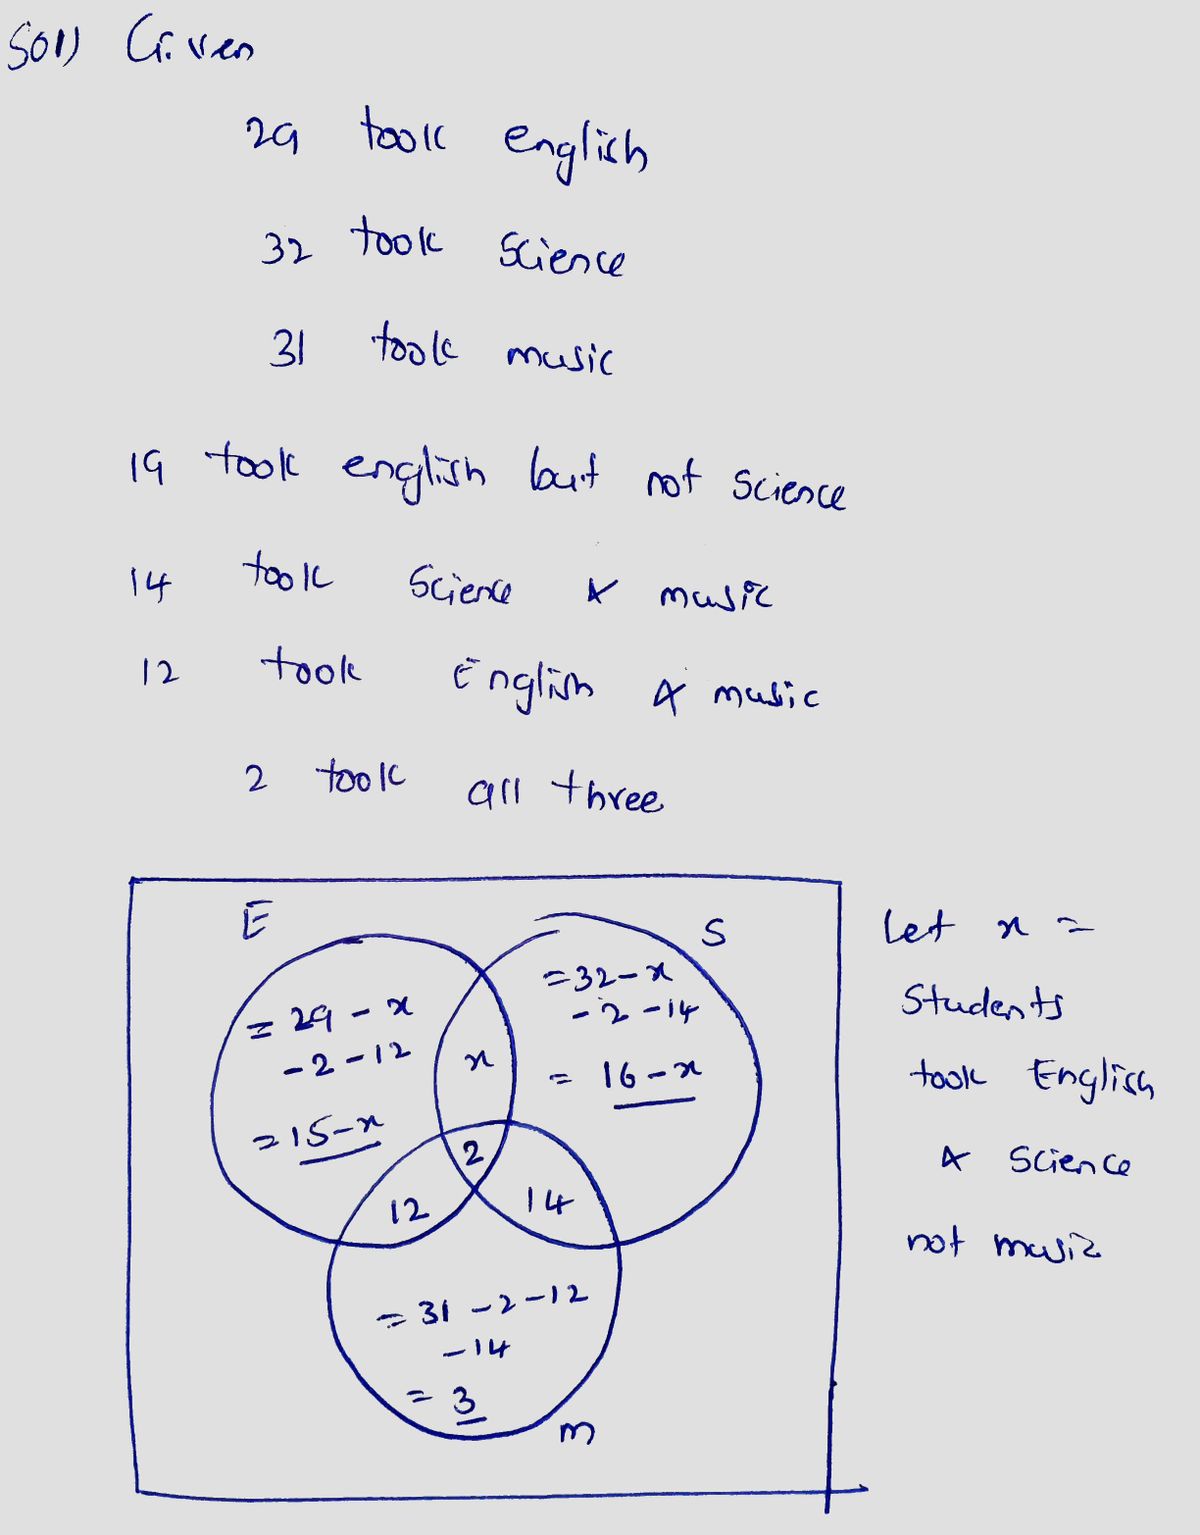 Sol) Given
29 took english
32 took Science
31 took music
19 took english but not Science
14 took Science & music
12 took English & music
2 took all three
E
S
= 29 - x
- 2 - 12
= 15 - x
x
= 32 - x
- 2 - 14
= 16 - x
2
12
14
= 31 - 2 - 12
- 14
= 3
m
Let x =
Students
took English
& Science
not music